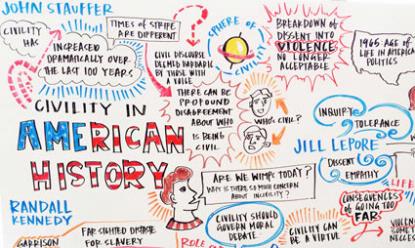 JOHN STAUFFER
CIVILITY HAS
INCREASED
DRAMATICALLY OVER
THE LAST 100 YEARS
TIMES OF STRIFE
ARE DIFFERENT
CIVIL DISCOURSE
DEEMED BARBARIC
BY THOSE WITH
A RULE
SPHERE OF
CIVILITY
BREAKDOWN OF
DISSENT INTO
VIOLENCE
NO LONGER
ACCEPTABLE
1965 AGE OF
LIFE IN AMERICA
POLITICS
CIVILITY IN
AMERICAN
HISTORY
THERE CAN BE
PROFOUND
DISAGREEMENT
ABOUT WHO
IS BEING
CIVIL
WHO'S CIVIL?
INQUIRY
TOLERANCE
JILL LEPORE
DISSENT
EMPATHY
RANDALL
KENNEDY
ARE WE WIMPS TODAY?
WHY IS THERE SO MUCH CONCERN
ABOUT INCIVILITY?
CIVILITY SHOULD
GOVERN MORAL
DEBATE
CIVILITY CAN
BE A VIRTUE
CONSEQUENCES
OF GOING TOO
FAR
GARRISON
FOR SLAVERY
ROLE